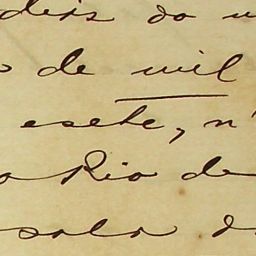 deis do
o de mil
esete, n
o Rio de
sala d